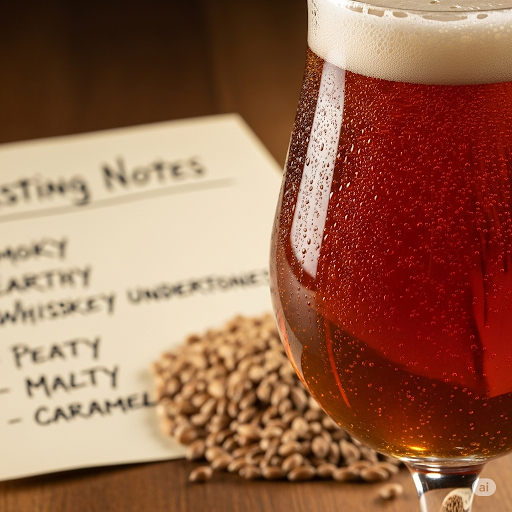 sting Notes
MOKY
EARTHY
WHISKEY UNDERTONE
- PEATY
- MALTY
- CARAMEL
ai